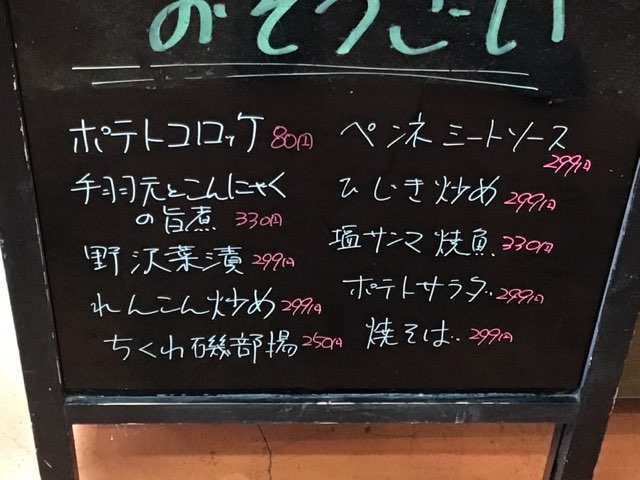 おそうざい
ポテトコロッケ 80円
手羽元とこんにゃく
の旨煮 330円
野沢菜漬 299円
れんこん炒め 299円
ちくわ磯部揚 250円
ペンネミートソース
299円
ひじき炒め 299円
塩サンマ焼魚 330円
ポテトサラダ 299円
焼そば 299円